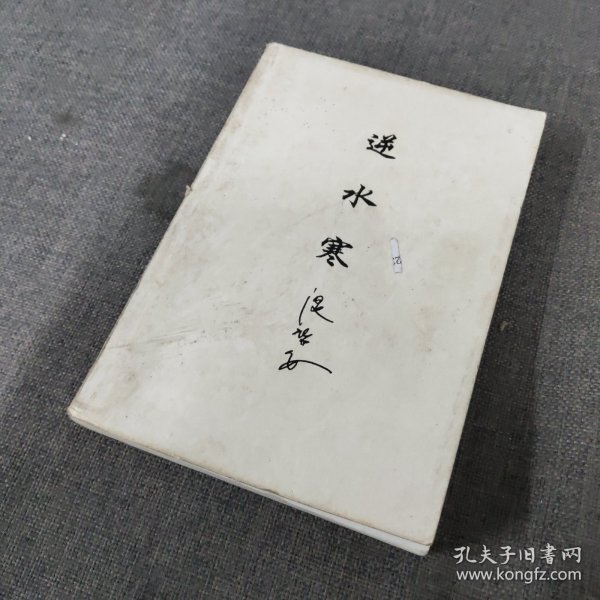 逆水寒
温瑞安
孔夫子旧书网
www.kongfz.com